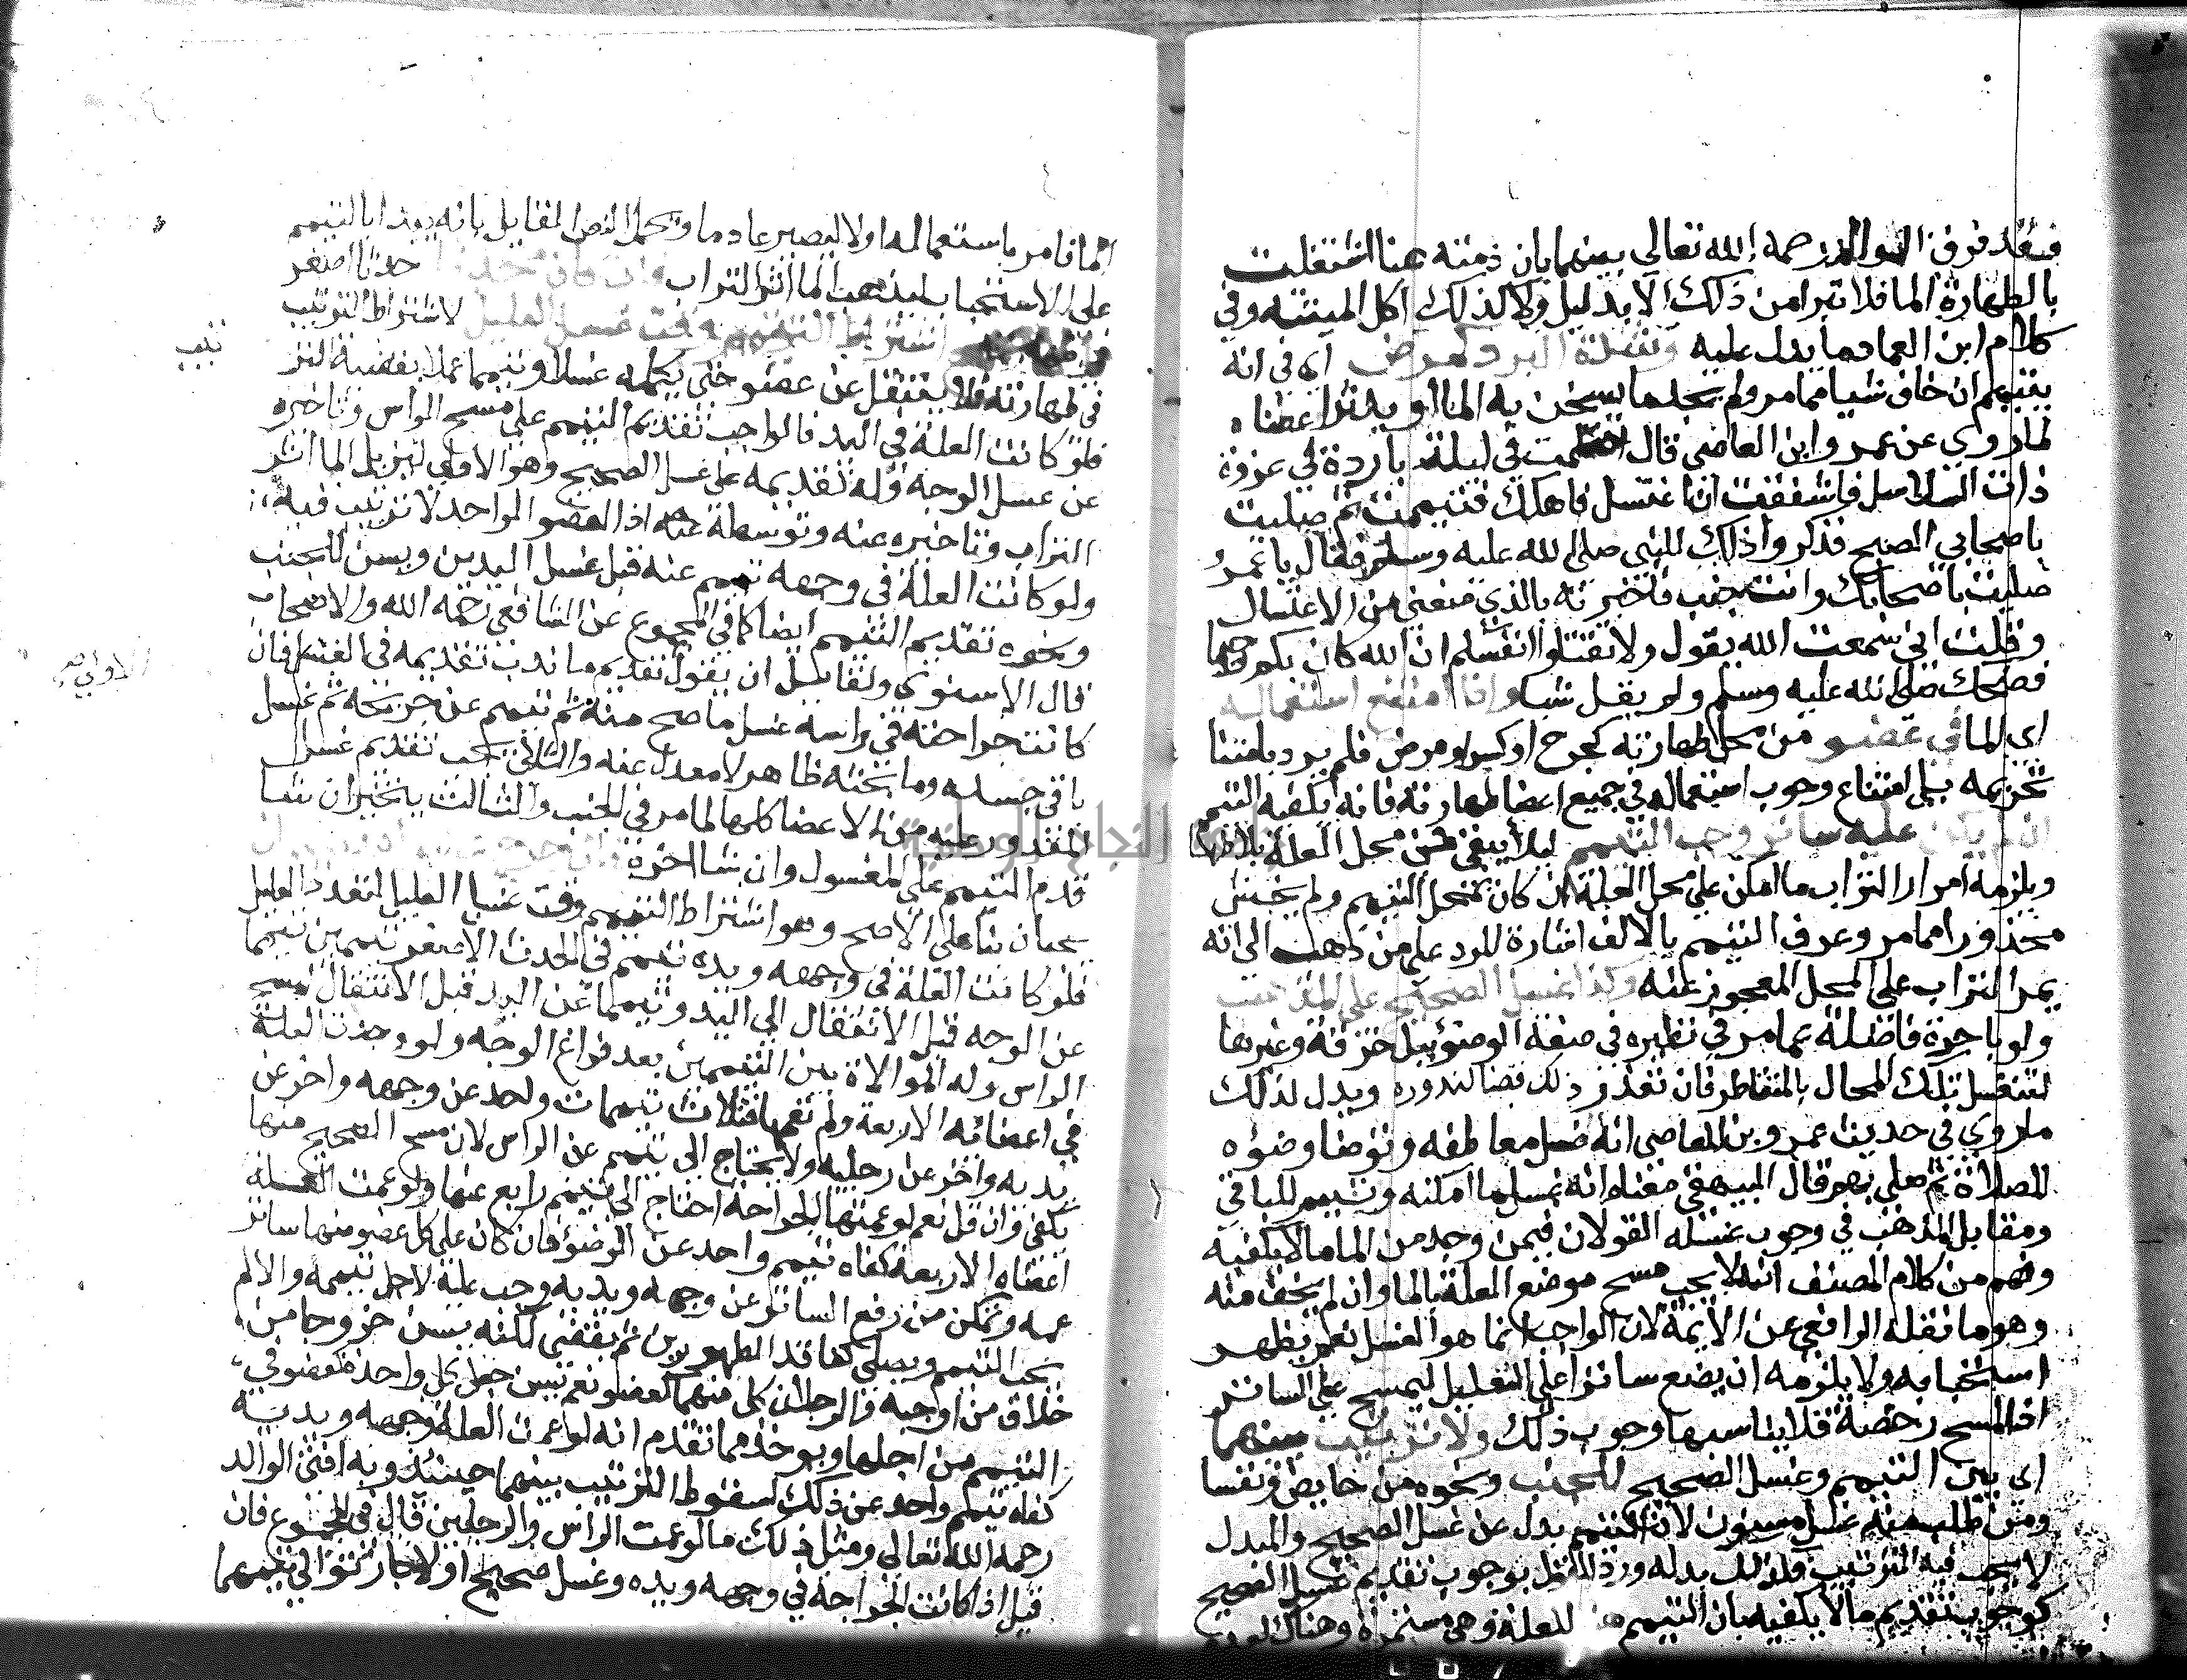 فقد فرق الوالد رحمه الله تعالى بينهما بان ذمته هنا اشتغلت
بالطهارة بالما فلا تبرا من ذلك الا بدليل ولا كذلك اكل الميتة وفي
كلام ابن العماد ما يدل عليه وشدة البرد كمرض اى في انه
يتيمم ان خاف شيا مما مر ولم يجد ما يسخن به الما او يدثر اعضاه
لما روي عن عمرو ابن العاصى قال احتلمت في ليلة باردة في غزوة
ذات السلاسل فاشفقت ان اغتسل فاهلك فتيممت ثم صليت
باصحابي الصبح فذكروا ذلك للنبى صلى الله عليه وسلم فقال يا عمرو
صليت باصحابك وانت جنب فاخبرته بالذي منعنى من الاغتسال
وقلت انى سمعت الله يقول ولا تقتلوا انفسكم ان الله كان بكم رحيما
فضحك صلى الله عليه وسلم ولم يقل شيا واذا امتنع استعماله
اي الما في عضو من محل طهارته كجرح او كسر او مرض فلم يرد بامتنا
تحريمه بل امتناع وجوب استعماله في جميع اعضا طهارته فانه يكفيه التيمم
ان لم يكن عليه ساتر وجب التيمم ليلا يبقى محل العلة بلا طها
ويلزمه امرار التراب ما امكن على محل العلة ان كان بمحل التيمم ولم يخش
محذورا مما مر وعرف التيمم بالالف اشارة للرد على من ذهب الى انه
يمر التراب على المحل المعجوز عنه وكذا غسل الصحيح على المذهب
ولو باجرة فاضلة عما مر في نظيره في صفة الوضوء ببل خرقة وعبرها
لتنغسل تلك المحال بالمتقاطر فان تعذر ذلك قضا لندوره ويدل لذلك
ما روي في حديث عمرو بن العاصى انه غسل معاطفه وتوضا وضوه
للصلاة ثم صلى بهم قال البيهقى معناه انه غسل ما امكنه وتيمم للباقي
ومقابل المذهب في وجوب غسله القولان فيمن وجد من الما ما لا يكفيه
وفهم من كلام المصنف انه لا يجب مسح موضع العلة بالما وان لم يخف منه
وهو ما نقله الرافعي عن الايمة لان الواجب انما هو الغسل نعم يظهر
استحبابه ولا يلزمه ان يضع ساترا على العليل ليمسح على الساتر
اذ المسح رخصة فلا يناسبها وجوب ذلك ولا ترتيب بينهما
اى بين التيمم وغسل الصحيح للجنب ونحوه من حايض ونفسا
ومن طلب منه غسل مسنون لان التيمم بدل عن غسل الصحيح والمبدل
لا يجب فيه الترتيب فكذلك بدله ورد القول بوجوب تقديم غسل الصحيح
كوجوب تقديم ما لا يكفيه بان التيمم هنا للعلة وهى مستمرة وهناك لعدم
الما فامر باستعماله اولا ليصير عادما وتحمل النص المقابل بانه يبدا بالتيمم
على الاستحباب ليذهب الما اثر التراب فان كان محدثا حدثا اصغر
فالاصح اشتراط التيمم وقت غسل العليل لاشتراط الترتيب
في طهارته فلا ينتقل عن عضو حتى يكمله غسلا وتيمما عملا بقضية التر
تيب
فلو كانت العلة في اليد فالواجب تقديم التيمم على مسح الراس وتاخيره
عن غسل الوجه وله تقديمه على غسل الصحيح وهو الاولى ليزيل الما اثر
التراب وتاخيره عنه وتوسطه عنه اذ العضو الواحد لا ترتيب فيه
ولو كانت العلة في وجهه تيمم عنه قبل غسل اليدين ويسن للجنب
ونحوه تقديم التيمم ايضا كما في المجموع عن الشافعي رحمه الله والاصحاب
قال الاسنوي ولقايل ان يقول تقديم ما ندب تقديمه في الغسل فان
كانت جراحته في راسه غسل ما صح منه ثم تيمم عن جريحه ثم غسل
باقي جسده وما بحثه ظاهر لا معدل عنه والثاني يجب تقديم غسل
المقدور عليه من الاعضا كلها لما مر في الجنب والثالث يتخير ان شا
قدم التيمم على المغسول وان شا اخره فان جرح عضواه فتيممان
يجبان بنا على الاصح وهو اشتراط التيمم وقت غسل العليل لتعدد العليل
فلو كانت العلة في وجهه ويده تيمم في الحدث الاصغر تيممين تيمما
عن الوجه قبل الانتقال الى اليد وتيمما عن اليد قبل الانتقال لمسح
الراس وله الموالاة بين التيممين بعد فراغ الوجه ولو وجدت العلة
في اعضائه الاربعة ولم تعمها فثلاث تيممات واحد عن وجهه واخر عن
يديه واخر عن رجليه ولا يحتاج الى تيمم عن الراس لان مسح الصحيح منها
يكفى وان قل نعم لو عمتها الجراحة احتاج الى تيمم رابع عنها ولو عمت العلة
اعضاه الاربعة كفاه تيمم واحد عن الوضوء فان كان على كل عضو منها ساتر
عمه وتمكن من رفع الساتر عن وجهه ويديه وجب عليه لاجل تيممه والا لم
يجب التيمم ويصلى كفاقد الطهورين ثم يقضى لكنه يسن خروجا من
خلاف من اوجبه والرجلان كل منهما كعضو نعم يسن جعل كل واحدة كعضو في
التيمم من اجلها ويوخذ مما تقدم انه لو عمت العلة وجهه ويديه
كفاه تيمم واحد عن ذلك لسقوط الترتيب بينهما حينئذ وبه افتى الوالد
رحمه الله تعالى ومثل ذلك ما لو عمت الراس والرجلين قال في المجموع فان
قيل اذا كانت الجراحة في وجهه ويده وغسل صحيح اولا جاز توالي تيممهما